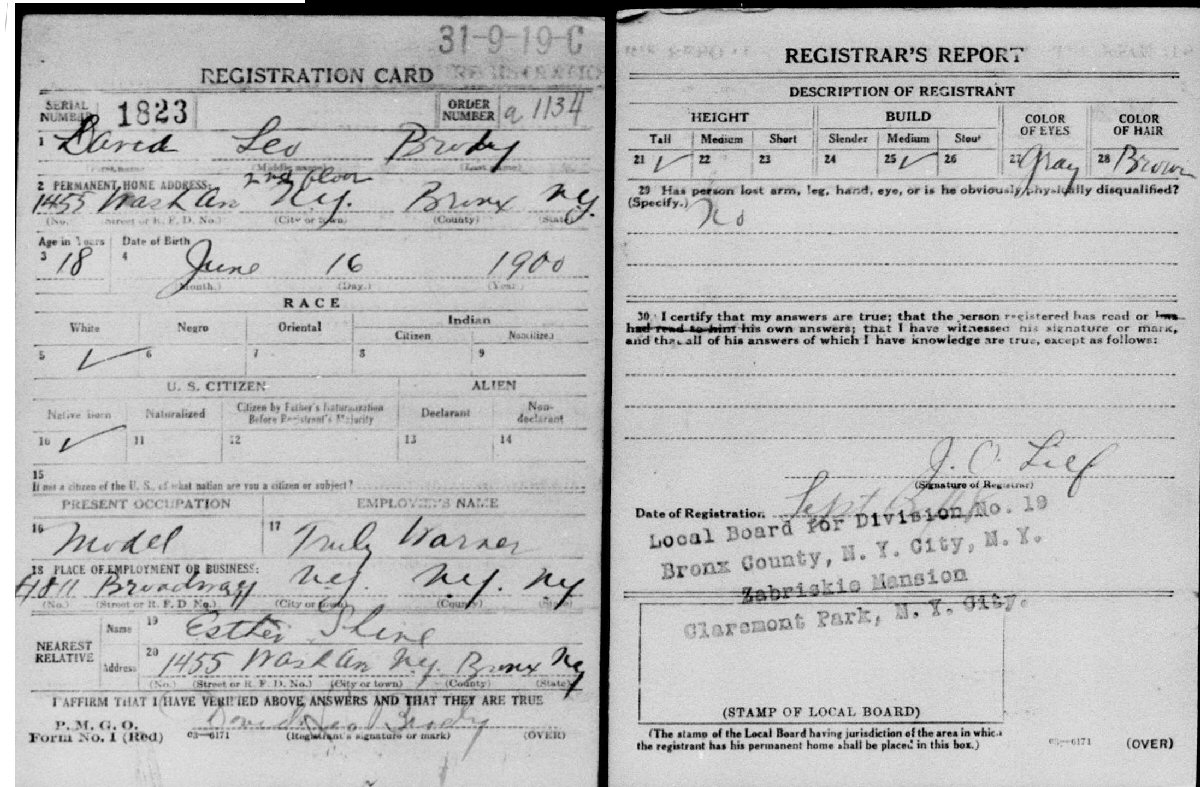 31-9-19-C
REGISTRATION CARD
SERIAL NUMBER 1823 ORDER NUMBER a 1134
1 David Leo Brody
(First name) (Middle name) (Last name)
2 PERMANENT HOME ADDRESS: 2nd floor
1455 Wash Av N.Y. Bronx N.Y.
(No.) (Street or R. F. D. No.) (City or town) (County) (State)
Age in Years Date of Birth
3 18 4 June 16 1900
(Month.) (Day.) (Year.)
RACE
White Negro Oriental Indian
Citizen Noncitizen
5 ✓ 6 7 8 9
U. S. CITIZEN ALIEN
Native born Naturalized Citizen by Father's Naturalization Before Registrant's Majority Declarant Non-declarant
10 ✓ 11 12 13 14
15
If not a citizen of the U. S., of what nation are you a citizen or subject?
PRESENT OCCUPATION EMPLOYER'S NAME
16 Model 17 Truly Warner
18 PLACE OF EMPLOYMENT OR BUSINESS:
Broadway N.Y. N.Y. NY
(No.) (Street or R. F. D. No.) (City or town) (County) (State)
NEAREST RELATIVE Name 19 Esther Shine
Address 20 1455 Wash Av N.Y. Bronx NY
(No.) (Street or R. F. D. No.) (City or town) (County) (State)
I AFFIRM THAT I HAVE VERIFIED ABOVE ANSWERS AND THAT THEY ARE TRUE
P. M. G. O.
Form No. 1 (Red) 03—6171 David Leo Brody
(Registrant's signature or mark) (OVER)
REGISTRAR'S REPORT
DESCRIPTION OF REGISTRANT
HEIGHT BUILD COLOR OF EYES COLOR OF HAIR
Tall Medium Short Slender Medium Stout
21 ✓ 22 23 24 25 ✓ 26 27 Gray 28 Brown
29 Has person lost arm, leg, hand, eye, or is he obviously physically disqualified?
(Specify.) No
30. I certify that my answers are true; that the person registered has read or has
had read to him his own answers; that I have witnessed his signature or mark,
and that all of his answers of which I have knowledge are true, except as follows:
(Signature of Registrar)
Date of Registration Sept
Local Board for Division No. 19
Bronx County, N. Y. City, N.Y.
Zabriskie Mansion
Claremont Park, N. Y. City.
(STAMP OF LOCAL BOARD)
(The stamp of the Local Board having jurisdiction of the area in which
the registrant has his permanent home shall be placed in this box.)
03—6171 (OVER)